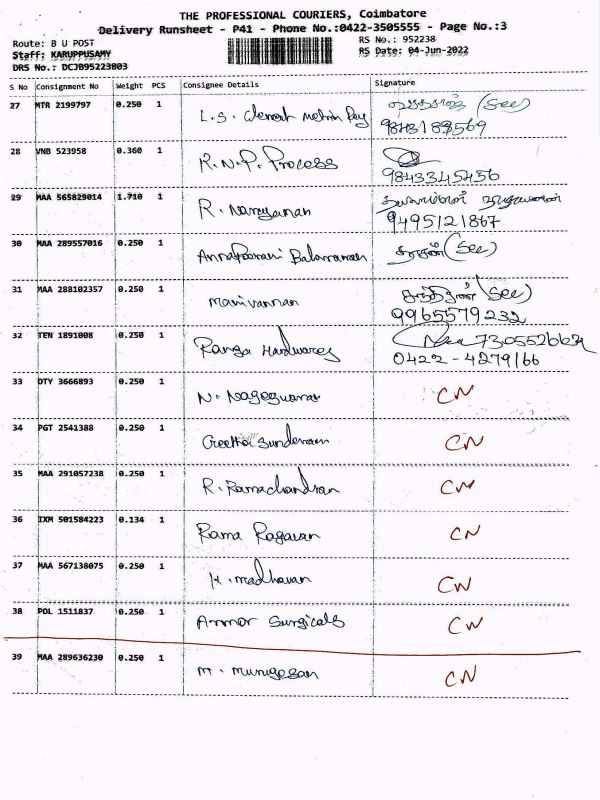 THE PROFESSIONAL COURIERS, Coimbatore
Delivery Runsheet - P41 - Phone No.:0422-3505555 - Page No.:3
Route: B U POST RS No.: 952238
Staff: KARUPPUSAMY RS Date: 04-Jun-2022
DRS No.: DCJB95223803
S No Consignment No Weight PCS Consignee Details Signature
27 MTR 2199797 0.250 1 L.S. (See)
9843183569
28 VNB 523958 0.360 1 R.N.P. Process
9843345456
29 MAA 565829014 1.710 1 R. Narayanan
9495121867
30 MAA 289557016 0.250 1 Annapoorani Balaraman (See)
31 MAA 288102357 0.250 1 Manivannan (See)
9965579232
32 TEN 1891008 0.250 1 Ranga Hardwares
0422-4279166
33 DTY 3666893 0.250 1 N. Nageswaran CN
34 PGT 2541388 0.250 1 Geetha Sunderam CN
35 MAA 291057238 0.250 1 R. Ramachandran CN
36 IXM 501584223 0.134 1 Rama Ragavan CN
37 MAA 567138075 0.250 1 K. madhavan CN
38 POL 1511837 0.250 1 Surgicals CN
39 MAA 289636230 0.250 1 M. Murugesan CN